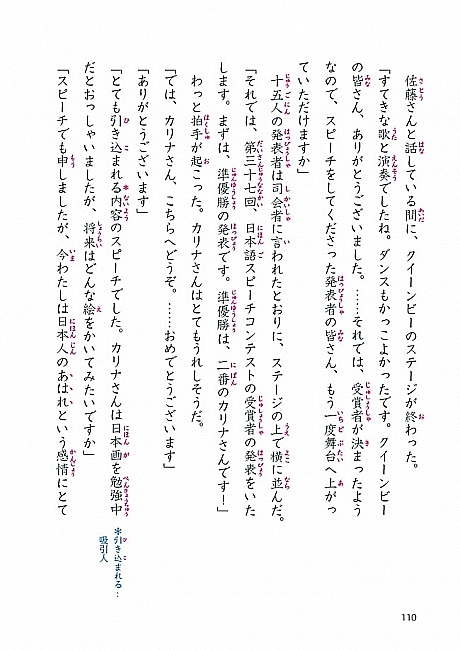 佐藤さんと話している間に、クイーンビーのステージが終わった。
「すてきな歌と演奏でしたね。ダンスもかっこよかったです。クイーンビー
の皆さん、ありがとうございました。……それでは、受賞者が決まったよう
なので、スピーチをしてくださった発表者の皆さん、もう一度舞台へ上がっ
ていただけますか」
十五人の発表者は司会者に言われたとおりに、ステージの上で横に並んだ。
「それでは、第三十七回、日本語スピーチコンテストの受賞者の発表をいた
します。まずは、準優勝の発表です。準優勝は、二番のカリナさんです！」
わっと拍手が起こった。カリナさんはとてもうれしそうだ。
「では、カリナさん、こちらへどうぞ。……おめでとうございます」
「ありがとうございます」
「とても引き込まれる内容のスピーチでした。カリナさんは日本画を勉強中
だとおっしゃいましたが、将来はどんな絵をかいてみたいですか」
「スピーチでも申しましたが、今わたしは日本人のあはれという感情にとて
＊引き込まれる：
吸引人
110